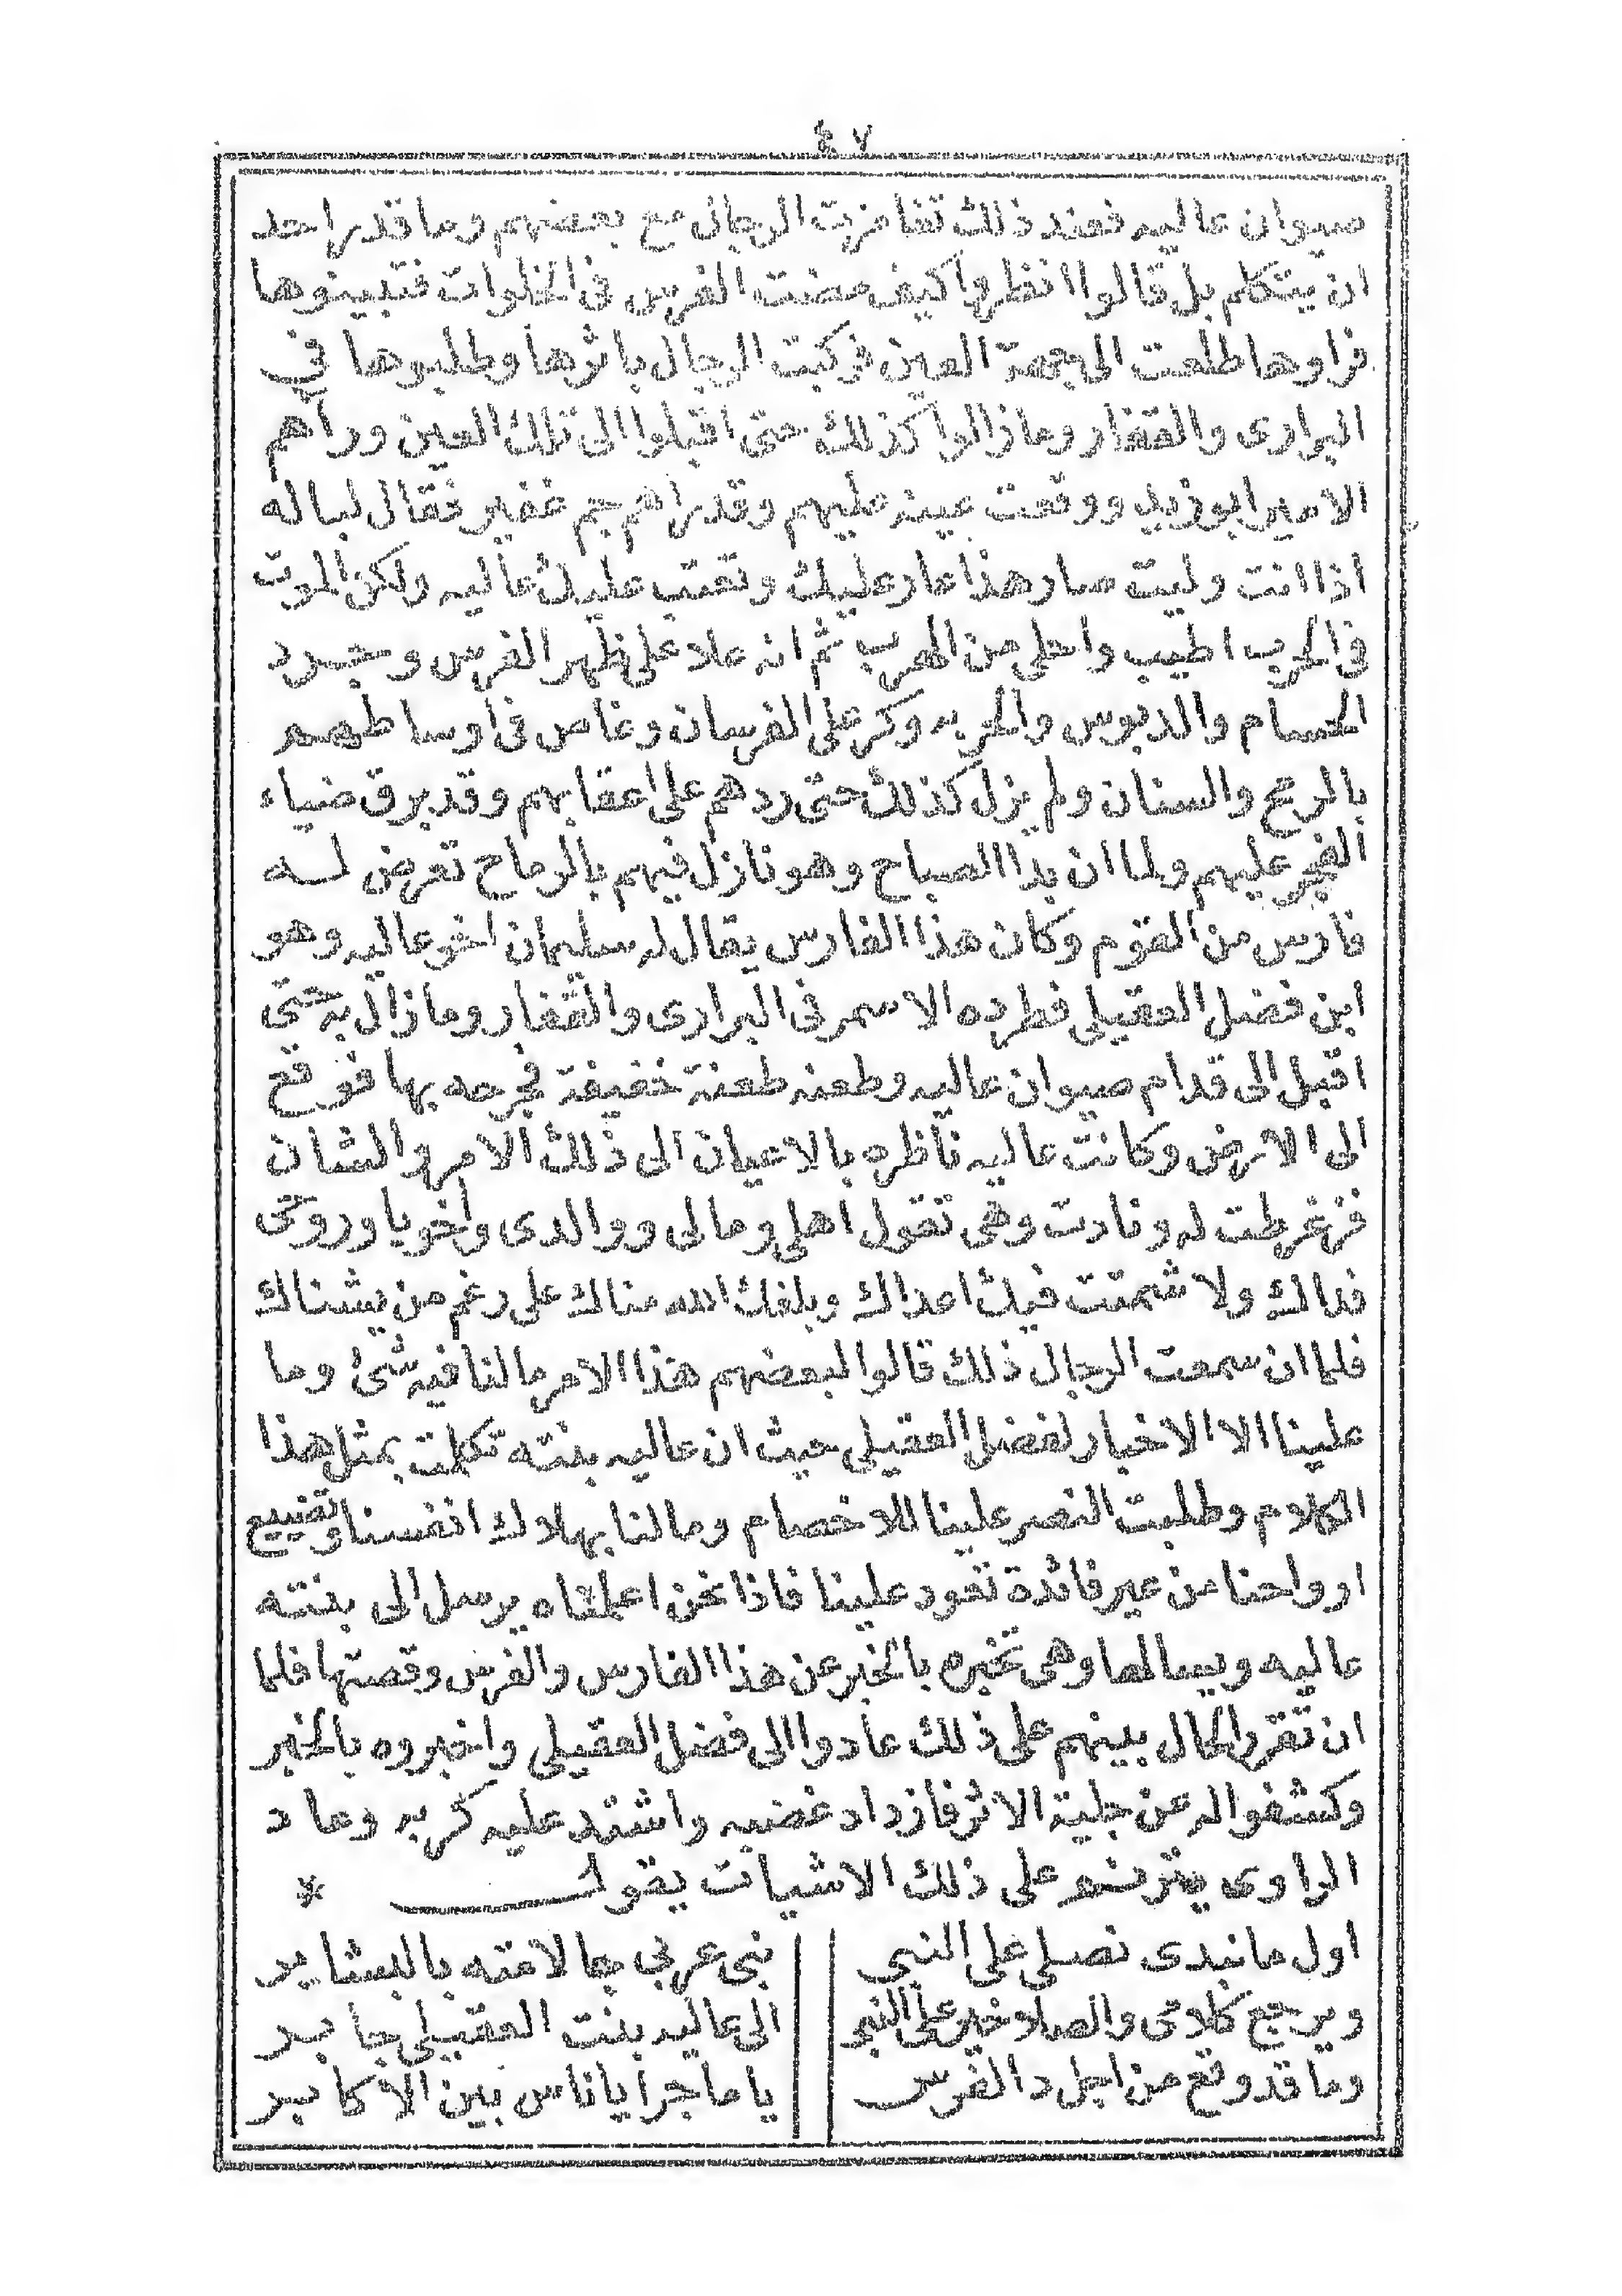 ٤٧
صيوان عاليه فعند ذلك تغامزت الرجال مع بعضهم وما قدر احد
ان يتكلم بل قالوا انظروا كيف مضت الفرس فى الخلوات فتبينوها
فراوها طلعت الى جهة العين فركبت الرجال باثرها وطلبوها فى
البرارى والقفار وما زالوا كذلك حتى اقبلوا الى تلك العين ورآهم
الامير ابو زيد ووقعت عينه عليهم وقد راهم جم غفير فقال لباله
اذا انت وليت صار هذا عار عليك وتعتب عليك عاليه ولكن الموت
فى الحرب اطيب واحلى من الهرب ثم انه علا على ظهر الفرس وجرد
الحسام والدبوس والحربه وكر على الفرسان وغاص فى اوساطهم
بالرمح والسنان ولم يزل كذلك حتى ردهم على اعقابهم وقد برق ضياء
الفجر عليهم ولما ان بدا الصباح وهو نازل فيهم بالرماح تعرض له
فارس من القوم وكان هذا الفارس يقال له سليمان اخو عاليه وهو
ابن فضل العقيلى فطرده الاسمر فى البرارى والقفار وما زال به حتى
اقبل الى قدام صيوان عاليه وطعنه طعنة خفيفة فجرحه بها فوقع
الى الارض وكانت عاليه ناظره بالاعيان الى ذلك الامر والشان
فزغرطت له ونادت وهى تقول اهلى ومالى ووالدى واخويا وروحى
فداك ولا شمتت فيك اعداك وبلغك الله مناك على رغم من يشناك
فلما ان سمعت الرجال ذلك قالوا لبعضهم هذا الامر مالنا فيه شئ وما
علينا الا الاخبار لفضل العقيلى حيث ان عاليه بنته تكلمت بمثل هذا
الكلام وطلبت النصر علينا للاخصام ومالنا بهلاك انفسنا وتضييع
ارواحنا من غير فائدة تعود علينا فاذا نحن اعلمناه يرسل الى بنته
عاليه ويسالها وهى تخبره بالخبر عن هذا الفارس والفرس وقصتها فلما
ان تقرر الحال بينهم على ذلك عادوا الى فضل العقيلى واخبروه بالخبر
وكشفوا له عن جلية الاثر فازداد غضبه واشتد عليه كربه وعاد
الراوى يترنم على ذلك الاشيات يقول *
اول ما نبدى نصلى على النبى نبى عربى جا لامته بالبشاير
ويرجع كلامى والصلا خير على النبى الى عاليه بنت العقيلى جابر
وما قد وقع من اجل دا الفرس ياما جرا يا ناس بين الاكابر